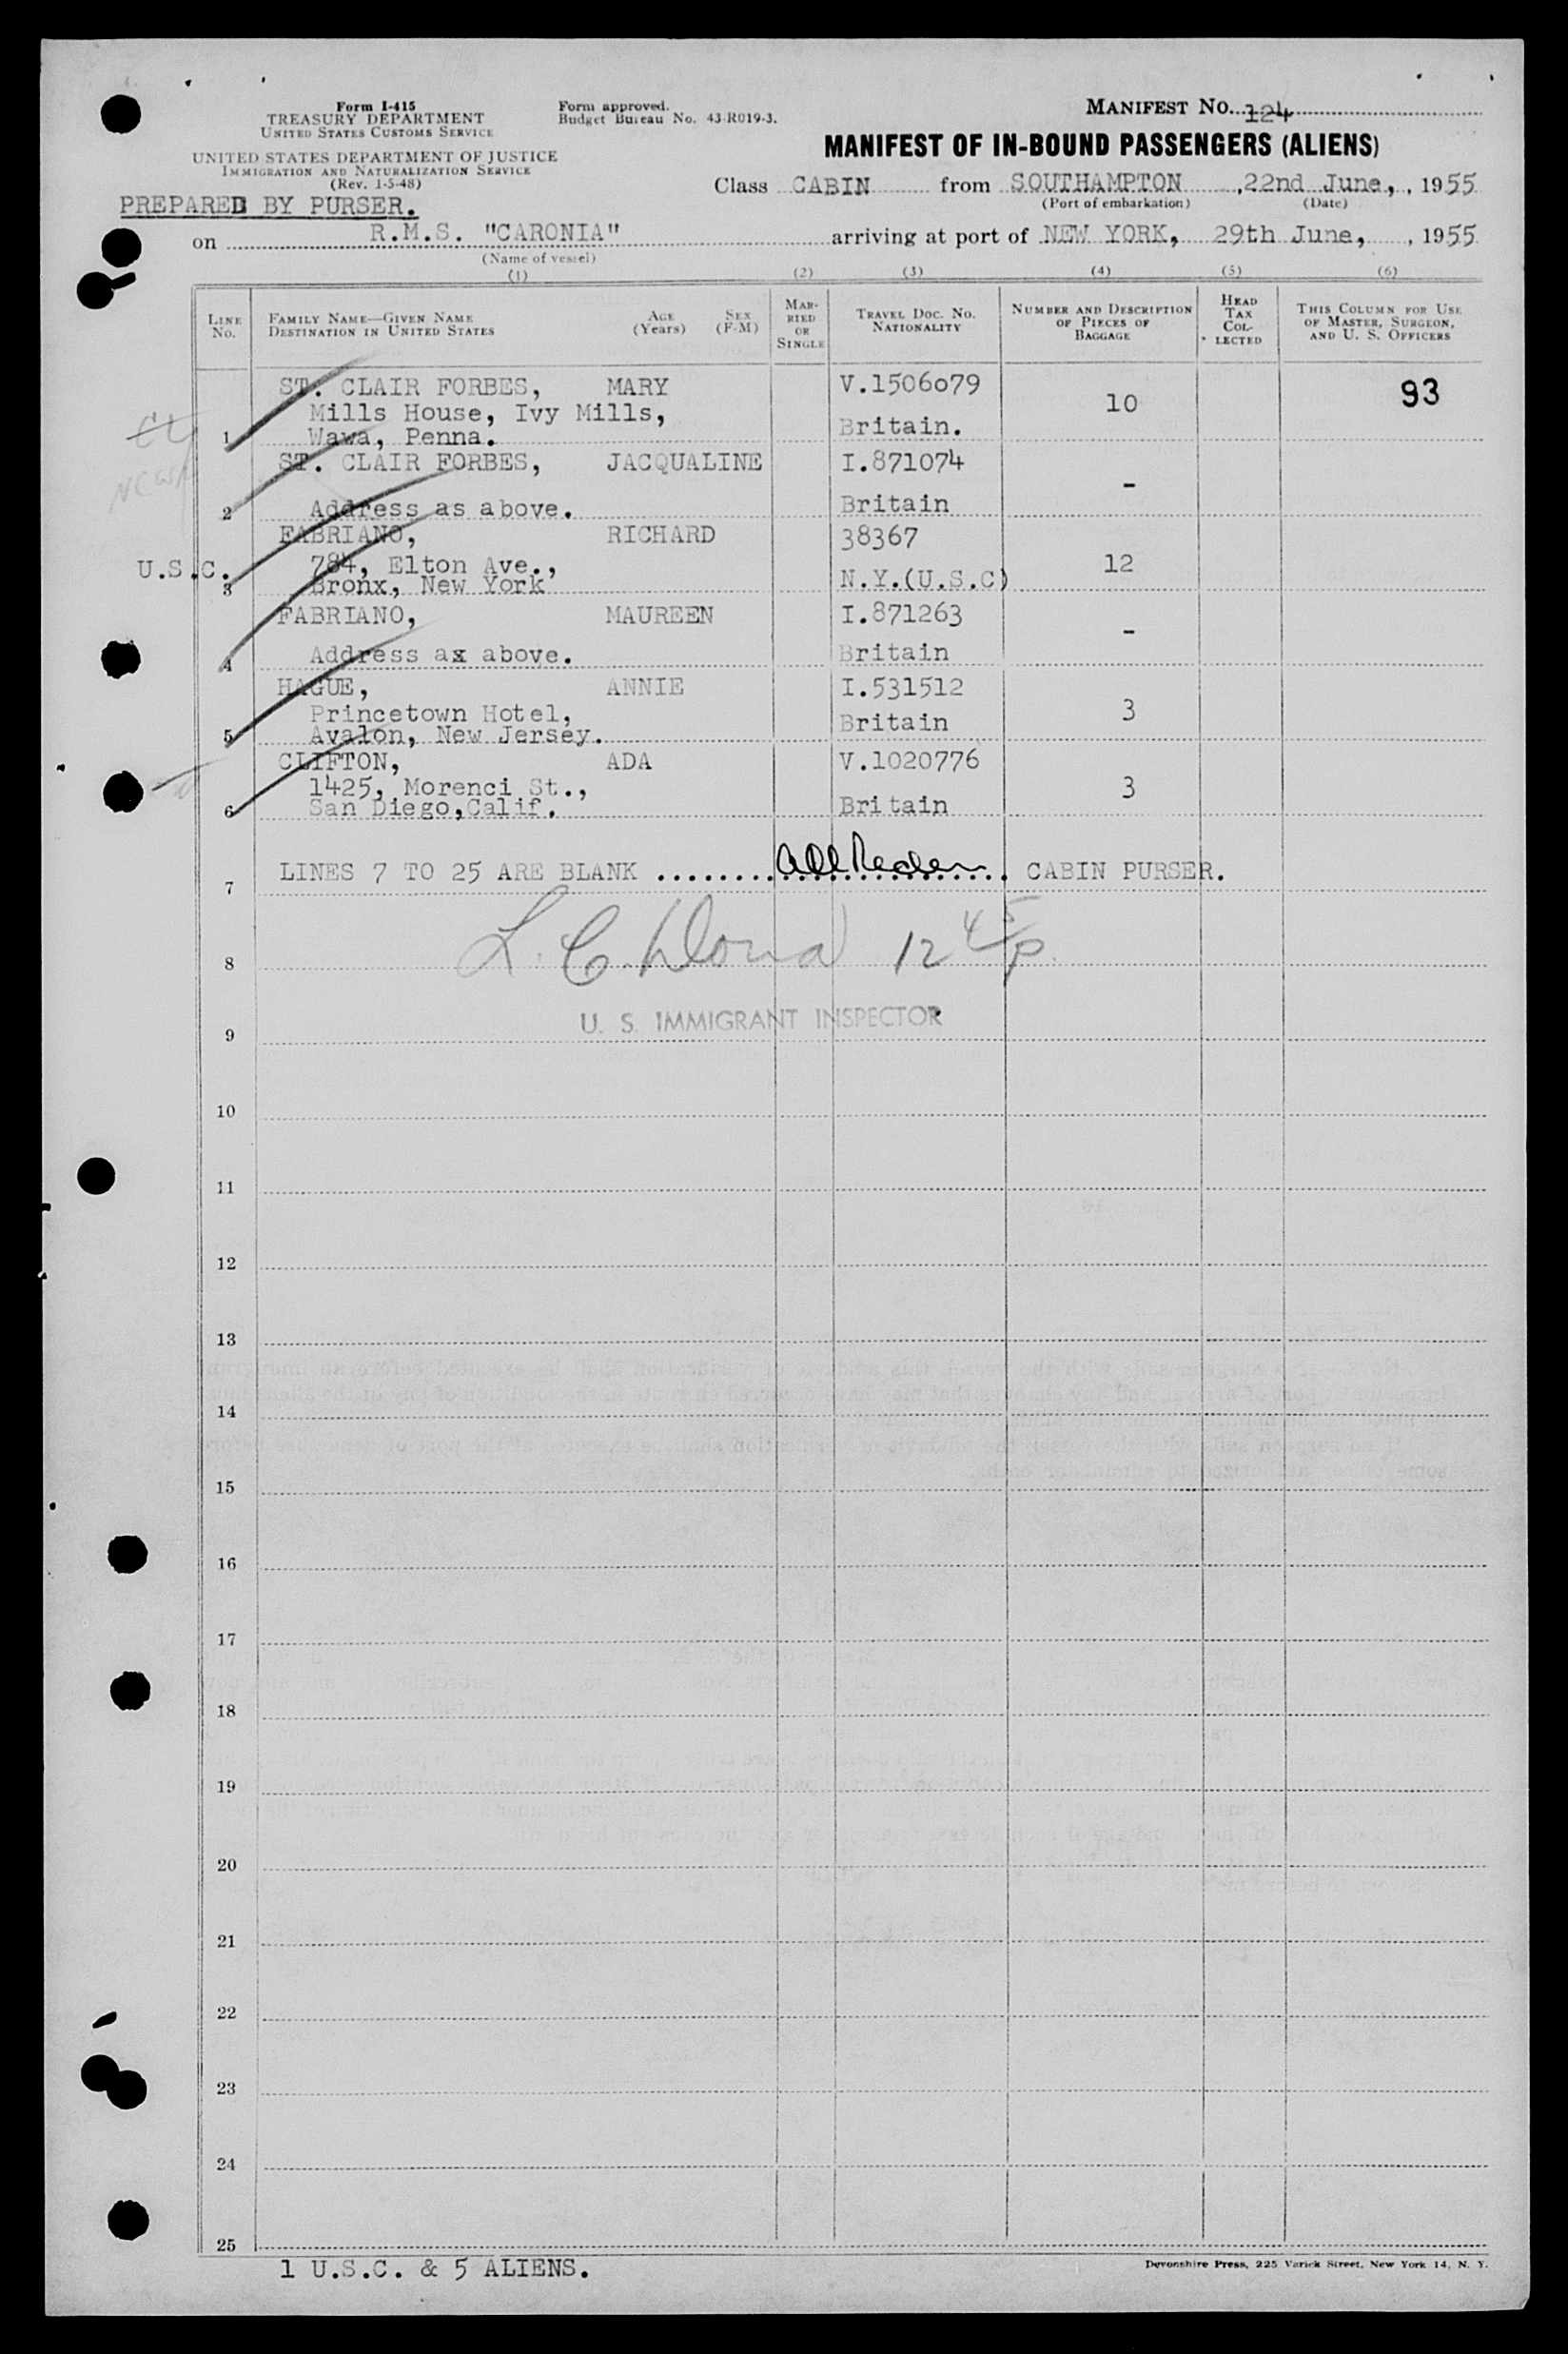 Form I-415
TREASURY DEPARTMENT
UNITED STATES CUSTOMS SERVICE
UNITED STATES DEPARTMENT OF JUSTICE
IMMIGRATION AND NATURALIZATION SERVICE
(Rev. 1-5-48)
Form approved.
Budget Bureau No. 43-R019-3.
MANIFEST NO. 124
MANIFEST OF IN-BOUND PASSENGERS (ALIENS)
Class CABIN from SOUTHAMPTON, 22nd June, , 1955
(Port of embarkation) (Date)
PREPARED BY PURSER.
on R.M.S. "CARONIA" arriving at port of NEW YORK, 29th June, , 1955
(Name of vessel)
(1) (2) (3) (4) (5) (6)
LINE NO. FAMILY NAME—GIVEN NAME DESTINATION IN UNITED STATES AGE (Years) SEX (F-M) MARRIED OR SINGLE TRAVEL DOC. NO. NATIONALITY NUMBER AND DESCRIPTION OF PIECES OF BAGGAGE HEAD TAX COLLECTED THIS COLUMN FOR USE OF MASTER, SURGEON, AND U. S. OFFICERS
ST. CLAIR FORBES, MARY V.1506079 10 93
Mills House, Ivy Mills,
1 Wawa, Penna. Britain.
ST. CLAIR FORBES, JACQUALINE I.871074 -
2 Address as above. Britain
FABRIANO, RICHARD 38367
U.S.C. 784, Elton Ave., 12
3 Bronx, New York N.Y.(U.S.C)
FABRIANO, MAUREEN I.871263 -
4 Address ax above. Britain
HAGUE, ANNIE I.531512
Princetown Hotel, 3
5 Avalon, New Jersey. Britain
CLIFTON, ADA V.1020776
1425, Morenci St., 3
6 San Diego,Calif. Britain
7 LINES 7 TO 25 ARE BLANK ........ CABIN PURSER.
8 12 45 p
9 U. S. IMMIGRANT INSPECTOR
10
11
12
13
14
15
16
17
18
19
20
21
22
23
24
25
1 U.S.C. & 5 ALIENS.
Devonshire Press, 225 Varick Street, New York 14, N. Y.